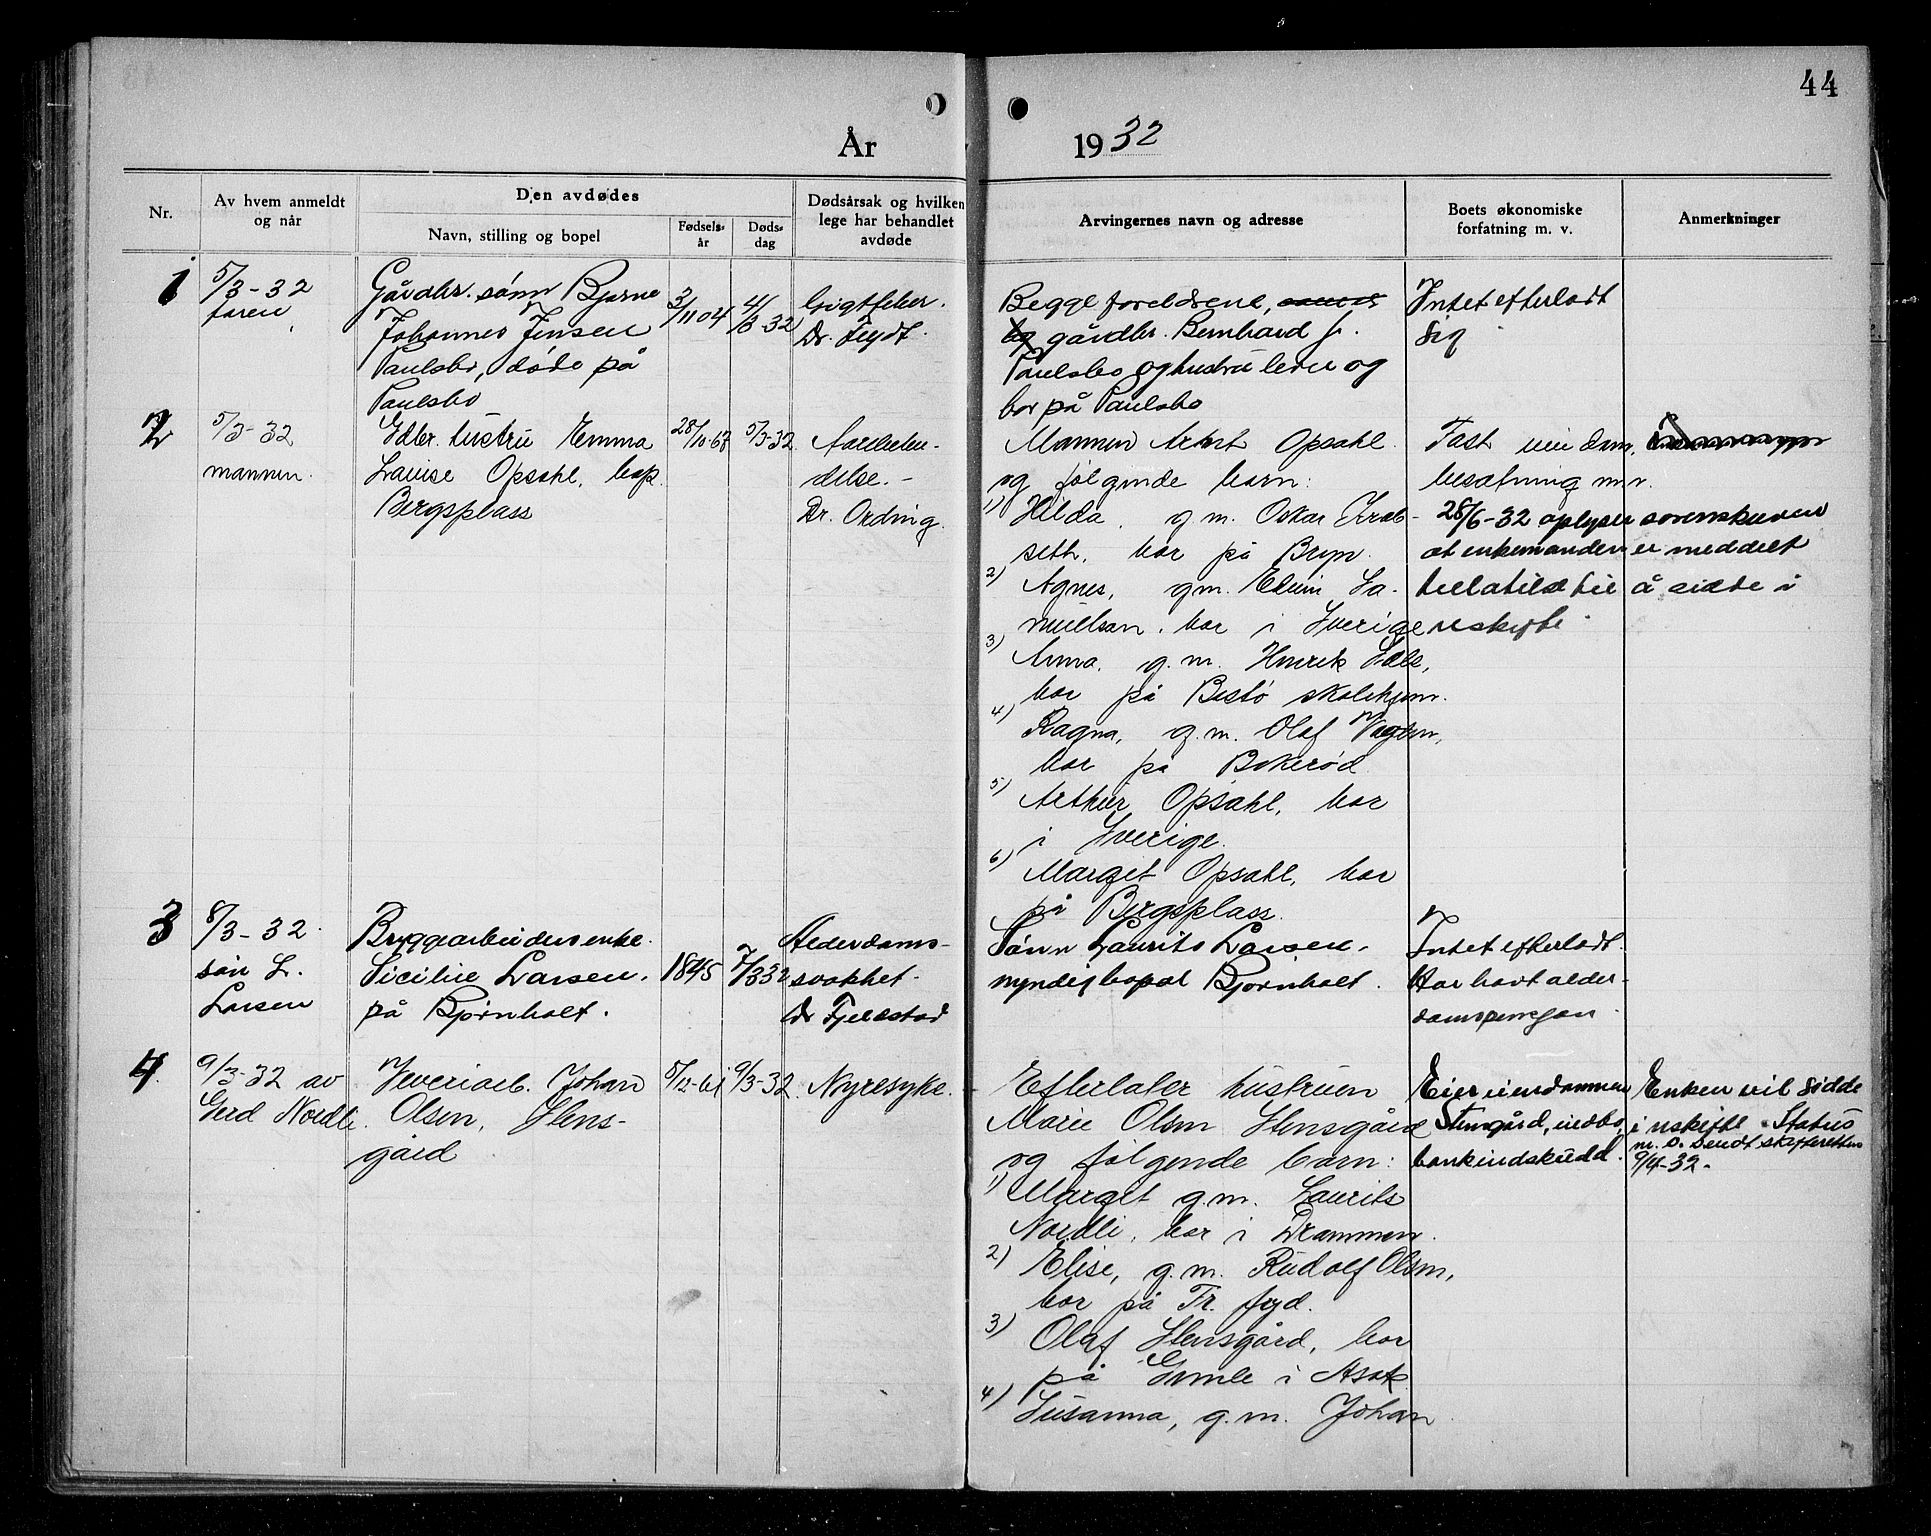 44
År 1932
Nr.
Av hvem anmeldt
og når
Den avdødes
Navn, stilling og bopel
Fødsels-
år
Døds-
dag
Dødsårsak og hvilken
lege har behandlet
avdøde
Arvingernes navn og adresse
Boets økonomiske
forfatning m. v.
Anmerkninger
1
5/3-32
faren
Gårdbr. sønn Bjarne
Johannes Jensen
Paulsbo, døde på
Paulsbo
3/11 04
4/3-32
Gigtfeber.
Dr.
Begge foreldrene,
og gårdbr. Bernhard J.
Paulsbo og hustru lever og
bor på Paulsbo
Intet efterladt
sig
2
5/3-32
mannen.
Gdbr. hustru Emma
Lauise Opsahl, bop.
Bergsplass
28/10-68
5/3-32
delse.-
Dr. Ording.
Mannen Arent Opsahl
og følgende barn:
1) Hilda, g.m. Oskar
seth, bor på Bryn.
2) Agnes, g.m. Elvin Sa-
muelsen, bor i Sverige
3) Anna, g.m. Henrik
bor på Bastø skolehjem.
4) Ragna, g.m. Olaf
bor på Bokerød
5) Arthur Opsahl, bor
i Sverige.
6) Marget Opsahl, bor
på Bergsplass.
Fast eiendom,
besætning m.v.
28/6-32 oplyser sorenskriveren
at enkemanden er meddelt
tillatelse til å sidde i
uskifte.
3
8/3-32.
søn L.
Larsen
Bryggearbeidersenke
Sicilie Larsen,
på Bjørnholt.
1845
7/3 32
Alderdoms-
svakhet
Dr Fjeldstad
Sønn Laurits Larsen,
myndig bopæl Bjørnholt.
Intet efterladt.
Har havt alder-
domspensjon.
4.
9/3-32 av
Gerd Nordli.
Veveriarb. Johan
Olsen, Stens-
gård
5/12-61
9/3-32
Nyresyke.
Efterlater hustruen
Marie Olsen Stensgård
og følgende barn:
1) Marget g.m. Laurits
Nordli, bor i Drammen.
2) Elise, g.m. Rudolf Olsen,
bor på Tr. fryd.
3) Olaf Stensgård, bor
på Gimle i Asak
4) Susanna, g.m. Johan
Eier eiendommen
Stensgård, indbo,
bankindskudd.
Enken vil sidde
i uskifte. Status
m. v. sendt skifteretten
9/4-32.-